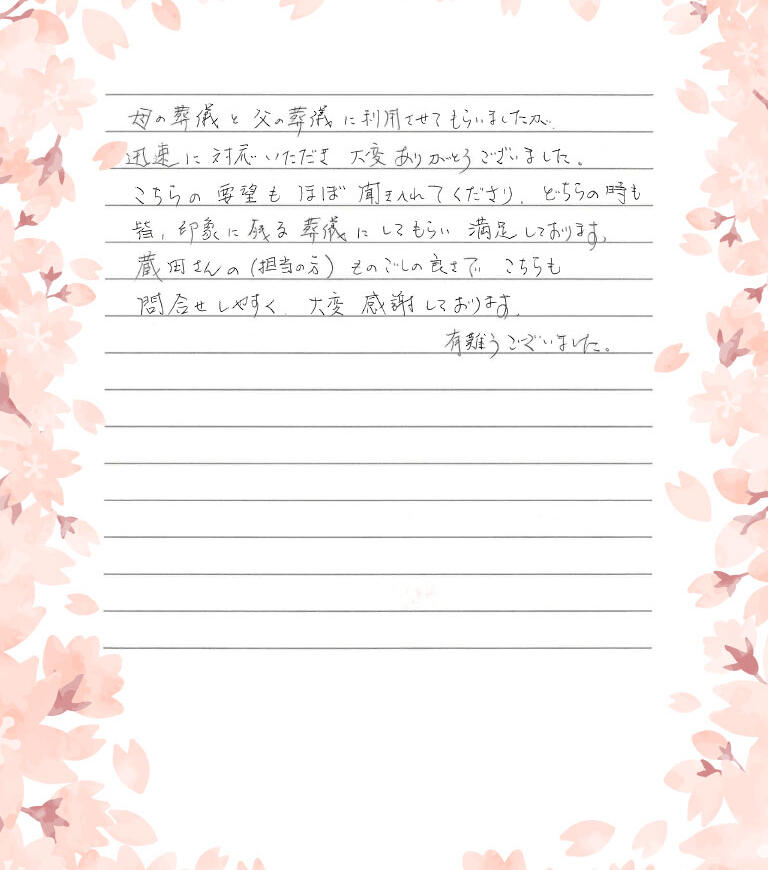 母の葬儀と父の葬儀に利用させてもらいましたが、
迅速に対応いただき 大変ありがとうございました。
こちらの要望もほぼ聞き入れてくださり、どちらの時も
皆、印象に残る葬儀にしてもらい 満足しております。
蔵田さんの(担当の方) ものごしの良さで こちらも
問合せしやすく、大変 感謝しております。
有難うございました。